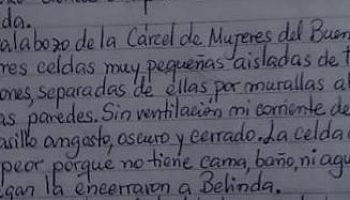 da.
alabozo de la Cárcel de Mujeres del Buen
res celdas muy pequeñas aisladas de t
ones, separadas de ellas por murallas al
as paredes. Sin ventilación mi corriente de
asillo angosto, oscuro y cerrado. La celda
peor porque no tiene cama, baño, ni agu
gan la encerraron a Belinda.